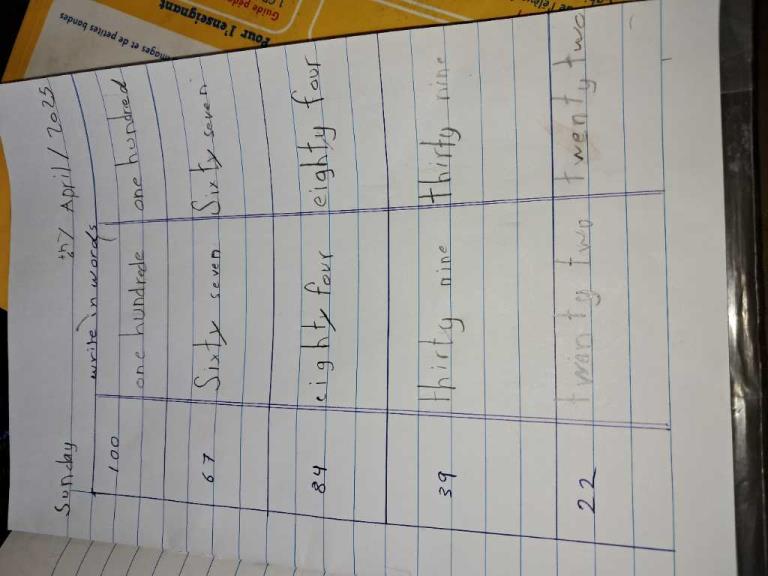 Pour l'enseignant
Guide péda
images et de petites bandes
Sunday April / 2025
write in words
100 one hundrede one hundred
67 Sixty seven Sixty seven
84 eighty four eighty four
39 thirty nine thirty nine
22 twinty two twenty two